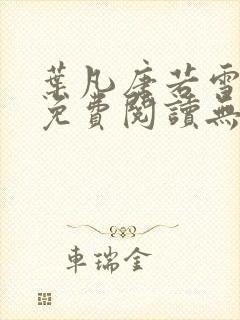 葉凡唐若雪
免費閱讀無
車瑞金